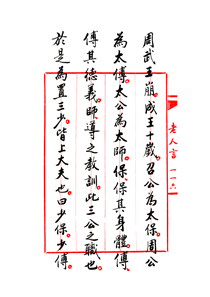 周武王崩。成王十歲。召公為太保。周公
為太傅。太公為太師。保保其身體。傅
傅其德義。師導之教訓。此三公之職也。
於是為置三少。皆上大夫也。曰少保少傅。
老人言 一一六